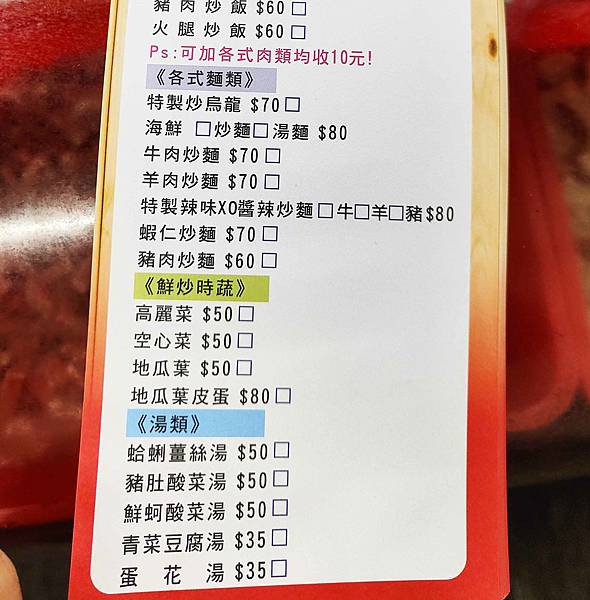 豬肉炒飯 $60□
火腿炒飯 $60□
Ps:可加各式肉類均收10元!
《各式麵類》
特製炒烏龍 $70□
海鮮 □炒麵□湯麵 $80
牛肉炒麵 $70□
羊肉炒麵 $70□
特製辣味XO醬辣炒麵□牛□羊□豬$80
蝦仁炒麵 $70□
豬肉炒麵 $60□
《鮮炒時蔬》
高麗菜 $50□
空心菜 $50□
地瓜葉 $50□
地瓜葉皮蛋 $80□
《湯類》
蛤蜊薑絲湯 $50□
豬肚酸菜湯 $50□
鮮蚵酸菜湯 $50□
青菜豆腐湯 $35□
蛋 花 湯 $35□